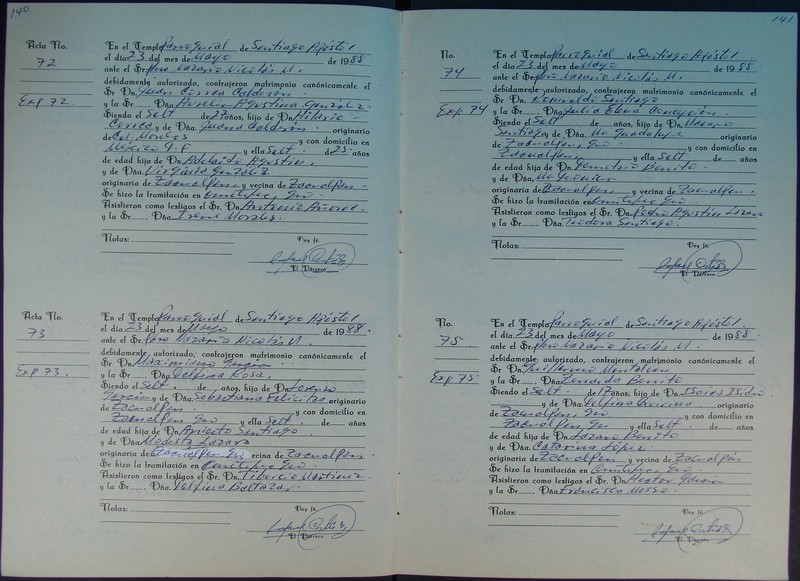 140
Acta No.
72
Exp 72.
En el Templo Parroquial de Santiago Apóstol
el día 23 del mes de Mayo de 1988
ante el Sr. Pbro Nazario Nicolás M.
debidamente autorizado, contrajeron matrimonio canónicamente el
Sr Dn. Juan Correa Calderón
y la Sr. Dña. Agustina González.
Siendo el Selt de 21 años, hijo de Hilario
Correa y de Dña. Juana Calderón. originario
de Col. Morelos y con domicilio en
México D.F y ella Selt. de 25 años
de edad hija de Dn. Adelaido Agustín.
y de Dña. Virginia González
originaria de Zacualpan y vecina de Zacualpan.
Se hizo la tramitación en Ometepec, Gro
Asistieron como testigos el Sr. Dn. Antonio Añorve.
y la Sr. Dña. Irene Morales.
Notas:
Doy fe.
El Párroco
Acta No.
73
Exp 73.
En el Templo Parroquial de Santiago Apóstol
el día 23 del mes de Mayo de 1988.
ante el Sr. Pbro Nazario Nicolás M
debidamente autorizado, contrajeron matrimonio canónicamente el
Sr Dn. Maximino
y la Sr. Dña. Delfina Rosa.
Siendo el Selt. de años, hijo de Lorenzo
García y de Dña. Sebastiana Felicitas originario
de Zacualpan y con domicilio en
Zacualpan Gro y ella Selt. de años
de edad hija de Dn. Aniceto Santiago
y de Dña. Modesta Lázaro
originaria de Zacualpan Gro vecina de Zacualpan.
Se hizo la tramitación en Ometepec Gro.
Asistieron como testigos el Sr. Dn. Tiburcio Martínez
y la Sr. Dña. Delfina Baltazar.
Notas:
Doy fe.
El Párroco
141
No.
74
Exp. 74
En el Templo Parroquial de Santiago Apóstol
el día 23 del mes de Mayo de 1988
ante el Sr. Pbro Nazario Nicolás M.
debidamente autorizado, contrajeron matrimonio canónicamente el
Sr Dn. Reynaldo Santiago
y la Sr. Dña. Julia Elena Concepción.
Siendo el Selt. de años, hijo de Macario
Santiago y de Dña. Ma Guadalupe originario
de Zacualpan, Gro y con domicilio en
Zacualpan y ella Selt de años
de edad hija de Dn. Demetrio Benito
y de Dña. Ma
originaria de Zacualpan y vecina de Zacualpan.
Se hizo la tramitación en Ometepec Gro.
Asistieron como testigos el Sr. Dn. Pedro Agustín Lázaro
y la Sr. Dña. Teodora Santiago.
Notas:
Doy fe.
El Párroco
No.
75
Exp 75
En el Templo Parroquial de Santiago Apóstol
el día 23 del mes de Mayo de 1988
ante el Sr. Pbro Nazario Nicolás M.
debidamente autorizado, contrajeron matrimonio canónicamente el
Sr Dn. Guillermo Montalván
y la Sr. Dña. Zenaida Benito
Siendo el Selt de 17 años, hijo de Isaías Isidro
y de Dña. Delfina originario
de Zacualpan, Gro y con domicilio en
Zacualpan, Gro y ella Selt. de años
de edad hija de Dn. Lázaro Benito
y de Dña. Catarina López.
originaria de Zacualpan y vecina de Zacualpán
Se hizo la tramitación en Ometepec Gro.
Asistieron como testigos el Sr. Dn. Hector García
y la Sr. Dña. Francisca Mosso.
Notas:
Doy fe.
El Párroco